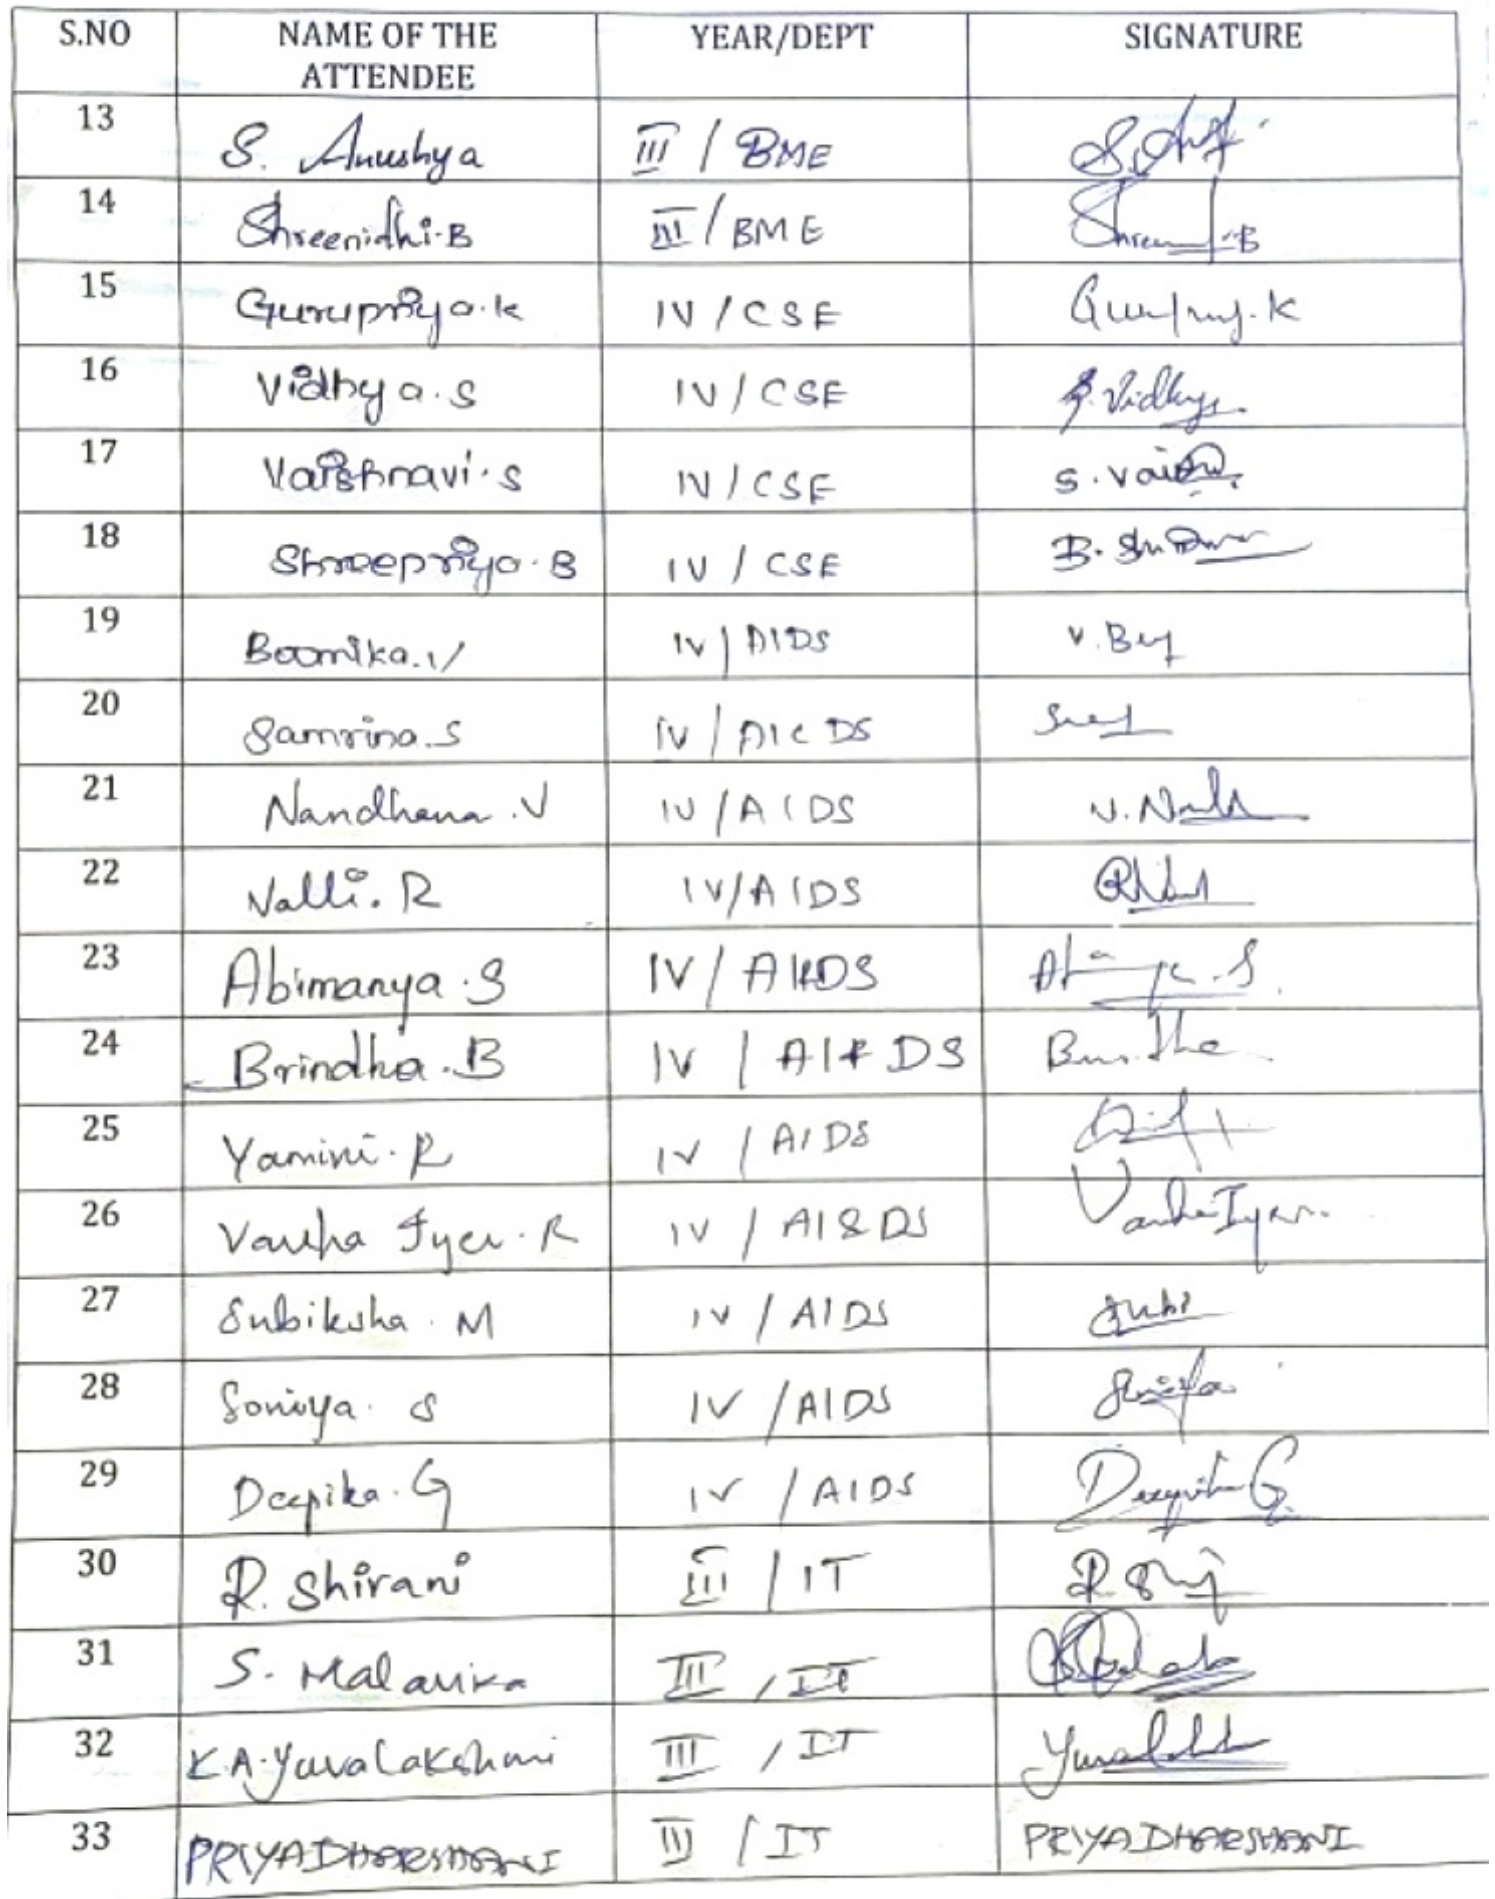 S.NO NAME OF THE ATTENDEE YEAR/DEPT SIGNATURE
13 S. Anushya III / BME
14 Shreenidhi.B III / BME
15 Gurupriya.k IV / CSE
16 Vidhya.S IV / CSE S. Vidhya
17 Vaishnavi.S IV / CSE
18 Shreepriya.B IV / CSE
19 Boomika.V IV / AIDS
20 Samrina.S IV / AI&DS
21 Nandhana.V IV / AIDS
22 Valli.R IV/AIDS
23 Abimanya.S IV / AI&DS
24 Brindha.B IV / AI&DS
25 Yamini.R IV / AIDS
26 Varsha Iyer.R IV / AI&DS Varsha Iyer
27 Subiksha.M IV / AIDS Subi
28 Soniya.S IV / AIDS
29 Deepika.G IV / AIDS Deepika G
30 R. Shirani III / IT
31 S. Malavika III / IT
32 K.A.Yuvalakshmi III / IT
33 PRIYADHARSHANI III / IT PRIYADHARSHANI